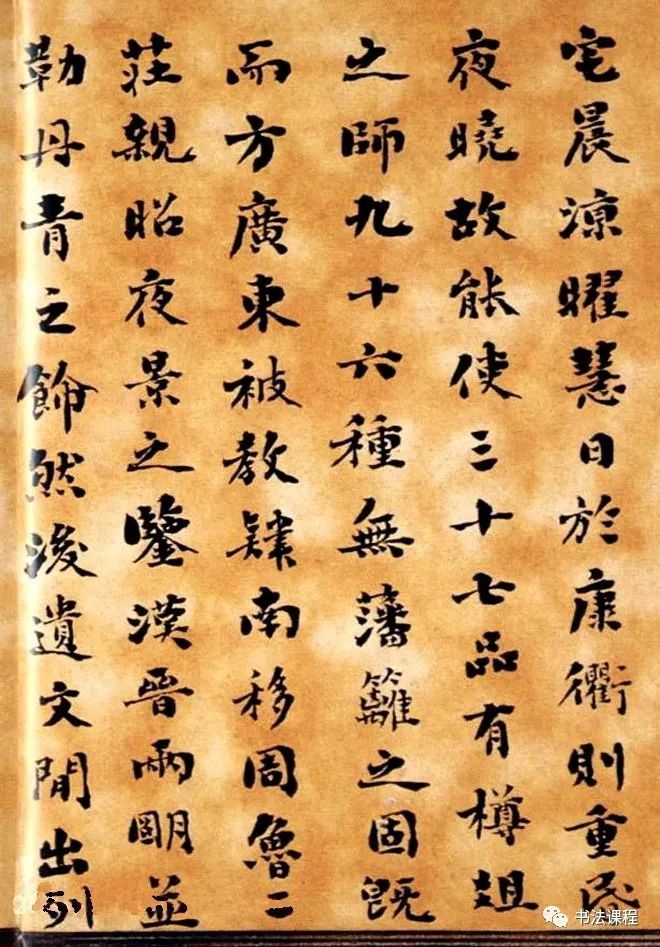 宅晨涼曜慧日於康衢則重昏
夜曉故能使三十七品有樽俎
之師九十六種無藩籬之固既
而方廣東被教肄南移周魯二
莊親昭夜景之鑒漢晉兩明並
勒丹青之飾然後遺文閒出列
书法课程